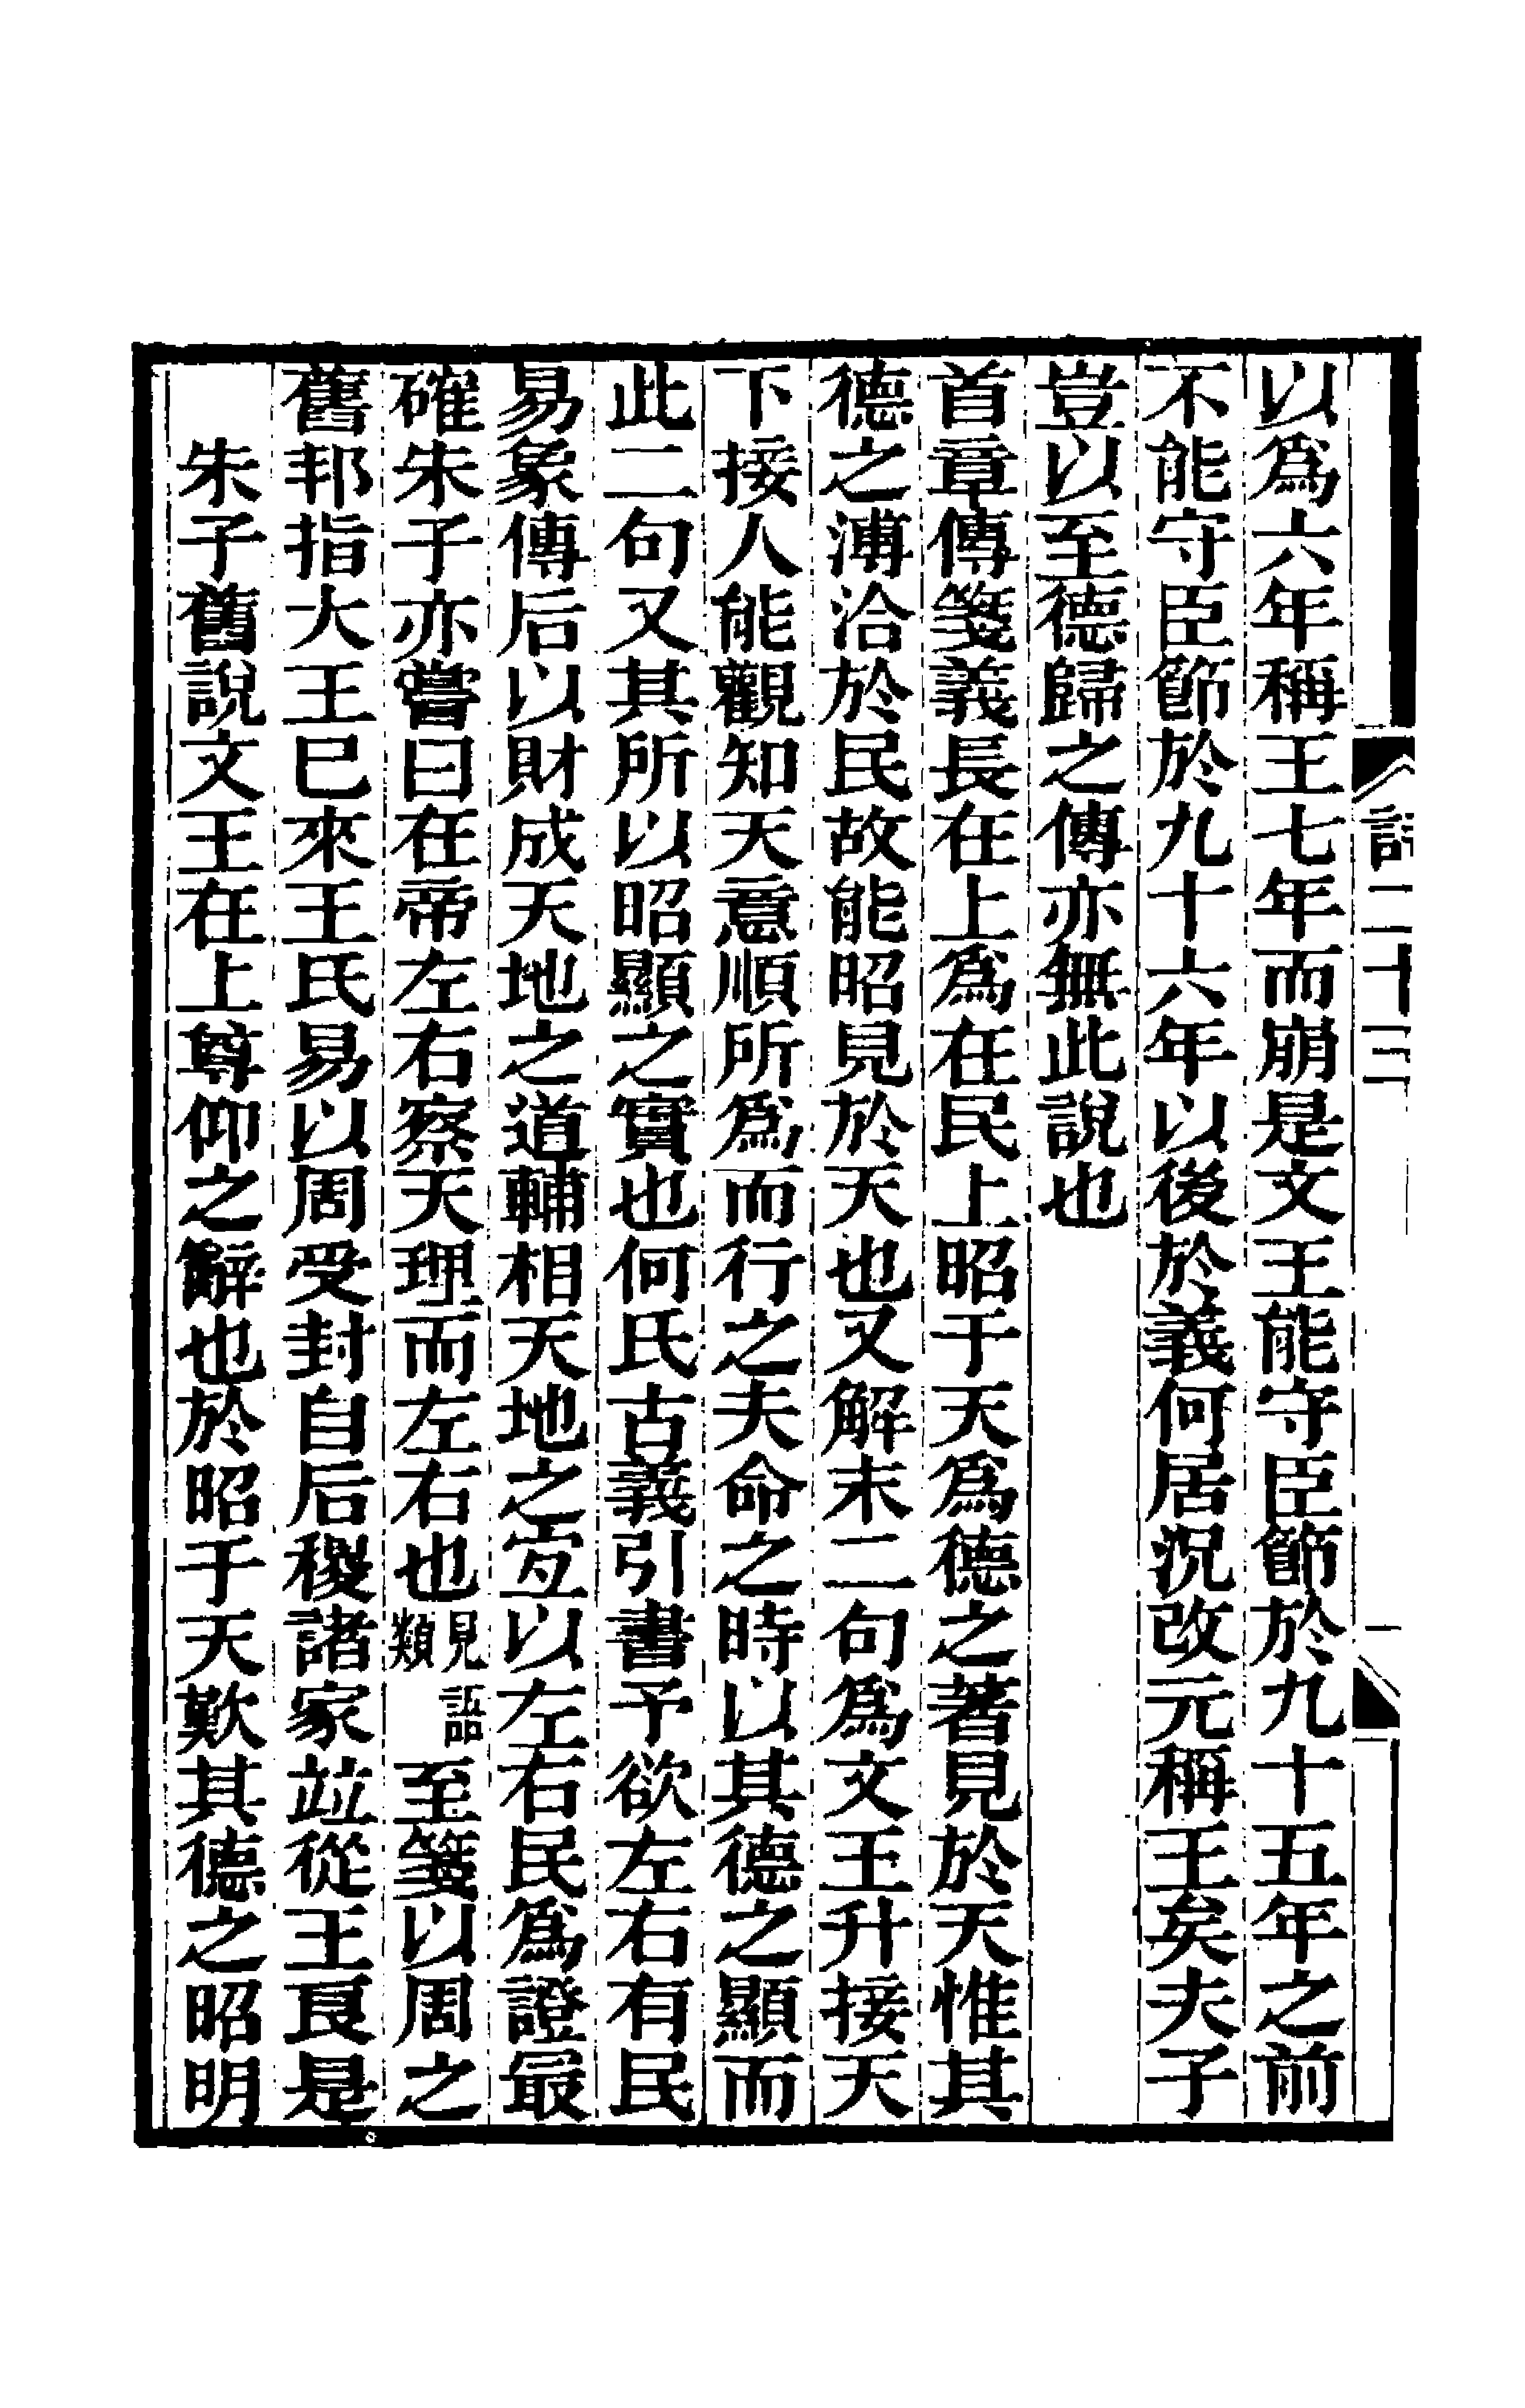 詩二十三
以爲六年稱王七年而崩是文王能守臣節於九十五年之前
不能守臣節於九十六年以後於義何居況改元稱王矣夫子
豈以至德歸之傳亦無此說也
首章傳箋義長在上爲在民上昭于天爲德之著見於天惟其
德之溥洽於民故能昭見於天也又解末二句爲文王升接天
下接人能觀知天意順所爲而行之夫命之時以其德之顯而
此二句又其所以昭顯之實也何氏古義引書予欲左右有民
易象傳后以財成天地之道輔相天地之宐以左右民爲證最
確朱子亦嘗曰在帝左右察天理而左右也見語類至箋以周之
舊邦指大王已來王氏易以周受封自后稷諸家竝從王良是
朱子舊說文王在上尊仰之辭也於昭于天歎其德之昭明